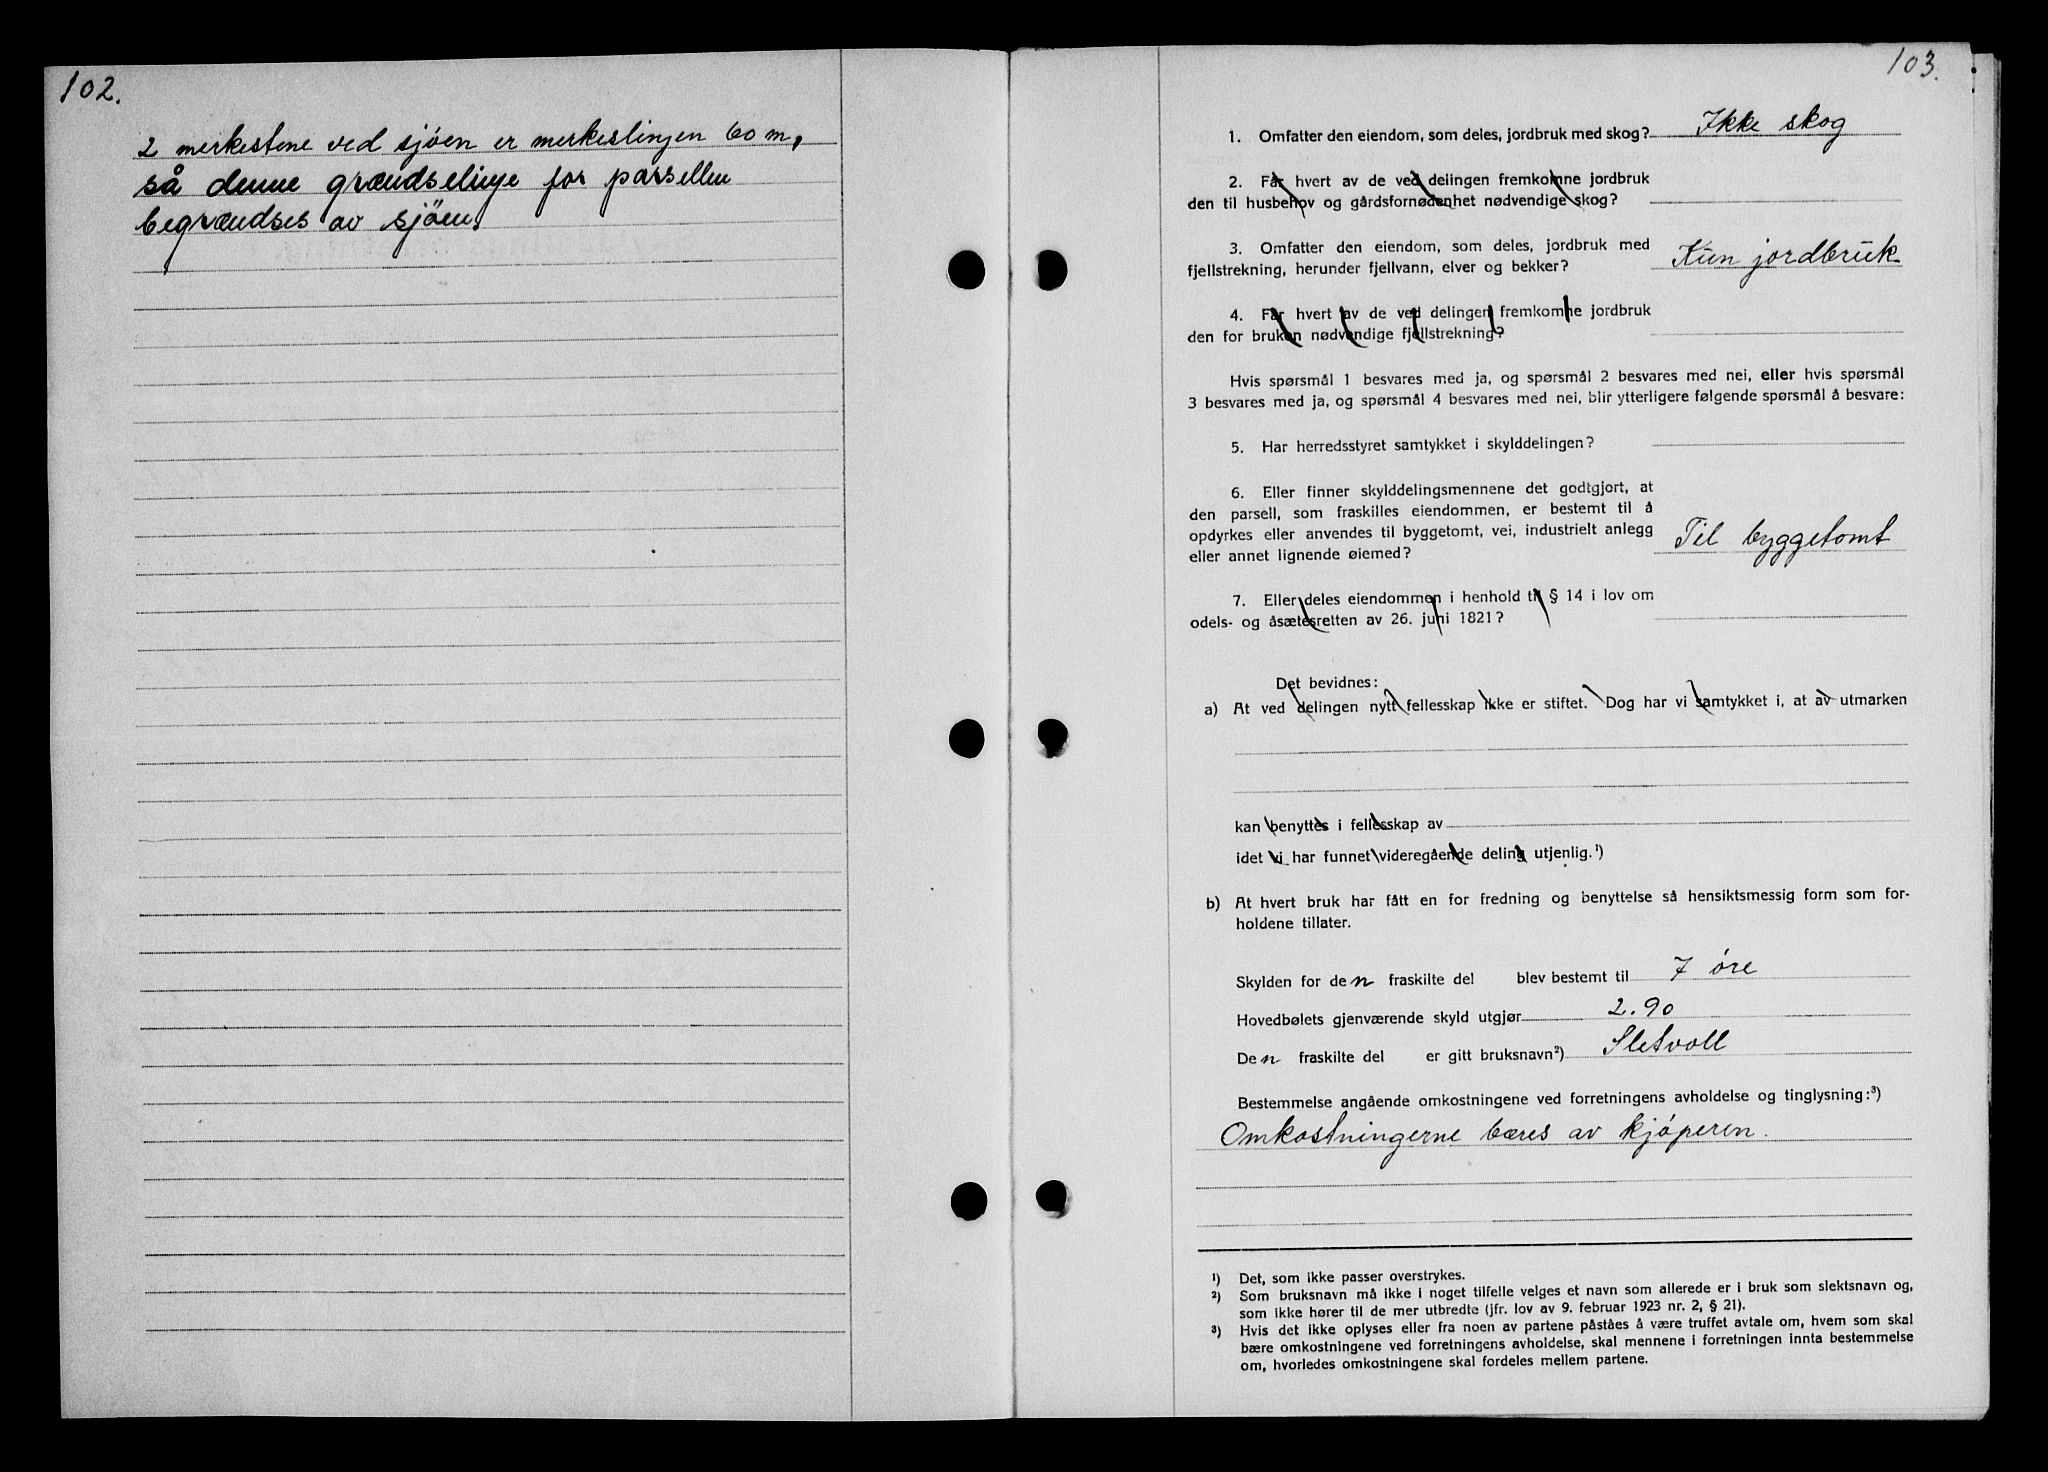 102.
2 merkestene ved sjøen er merkeslinjen 60 m,
så denne grændselinje for parsellen
begrændses av sjöen.
103.
1. Omfatter den eiendom, som deles, jordbruk med skog? Ikke skog
2. Får hvert av de ved delingen fremkomne jordbruk
den til husbehov og gårdsfornødenhet nødvendige skog?
3. Omfatter den eiendom, som deles, jordbruk med
fjellstrekning, herunder fjellvann, elver og bekker? Kun jordbruk
4. Får hvert av de ved delingen fremkomne jordbruk
den for bruken nødvendige fjellstrekning?
Hvis spørsmål 1 besvares med ja, og spørsmål 2 besvares med nei, eller hvis spørsmål
3 besvares med ja, og spørsmål 4 besvares med nei, blir ytterligere følgende spørsmål å besvare:
5. Har herredsstyret samtykket i skylddelingen?
6. Eller finner skylddelingsmennene det godtgjort, at
den parsell, som fraskilles eiendommen, er bestemt til å
opdyrkes eller anvendes til byggetomt, vei, industrielt anlegg
eller annet lignende øiemed? Til byggetomt
7. Eller deles eiendommen i henhold til § 14 i lov om
odels- og åsætesretten av 26. juni 1821?
Det bevidnes:
a) At ved delingen nytt fellesskap ikke er stiftet. Dog har vi samtykket i, at av utmarken
kan benyttes i fellesskap av
idet vi har funnet videregående deling utjenlig.¹)
b) At hvert bruk har fått en for fredning og benyttelse så hensiktsmessig form som for-
holdene tillater.
Skylden for den fraskilte del blev bestemt til 7 øre
Hovedbølets gjenværende skyld utgjør 2.90
Den fraskilte del er gitt bruksnavn²) Sletvoll
Bestemmelse angående omkostningene ved forretningens avholdelse og tinglysning:³)
Omkostningerne bæres av kjøperen.
¹) Det, som ikke passer overstrykes.
²) Som bruksnavn må ikke i noget tilfelle velges et navn som allerede er i bruk som slektsnavn og,
som ikke hører til de mer utbredte (jfr. lov av 9. februar 1923 nr. 2, § 21).
³) Hvis det ikke oplyses eller fra noen av partene påståes å være truffet avtale om, hvem som skal
bære omkostningene ved forretningens avholdelse, skal mennene i forretningen innta bestemmelse
om, hvorledes omkostningene skal fordeles mellem partene.